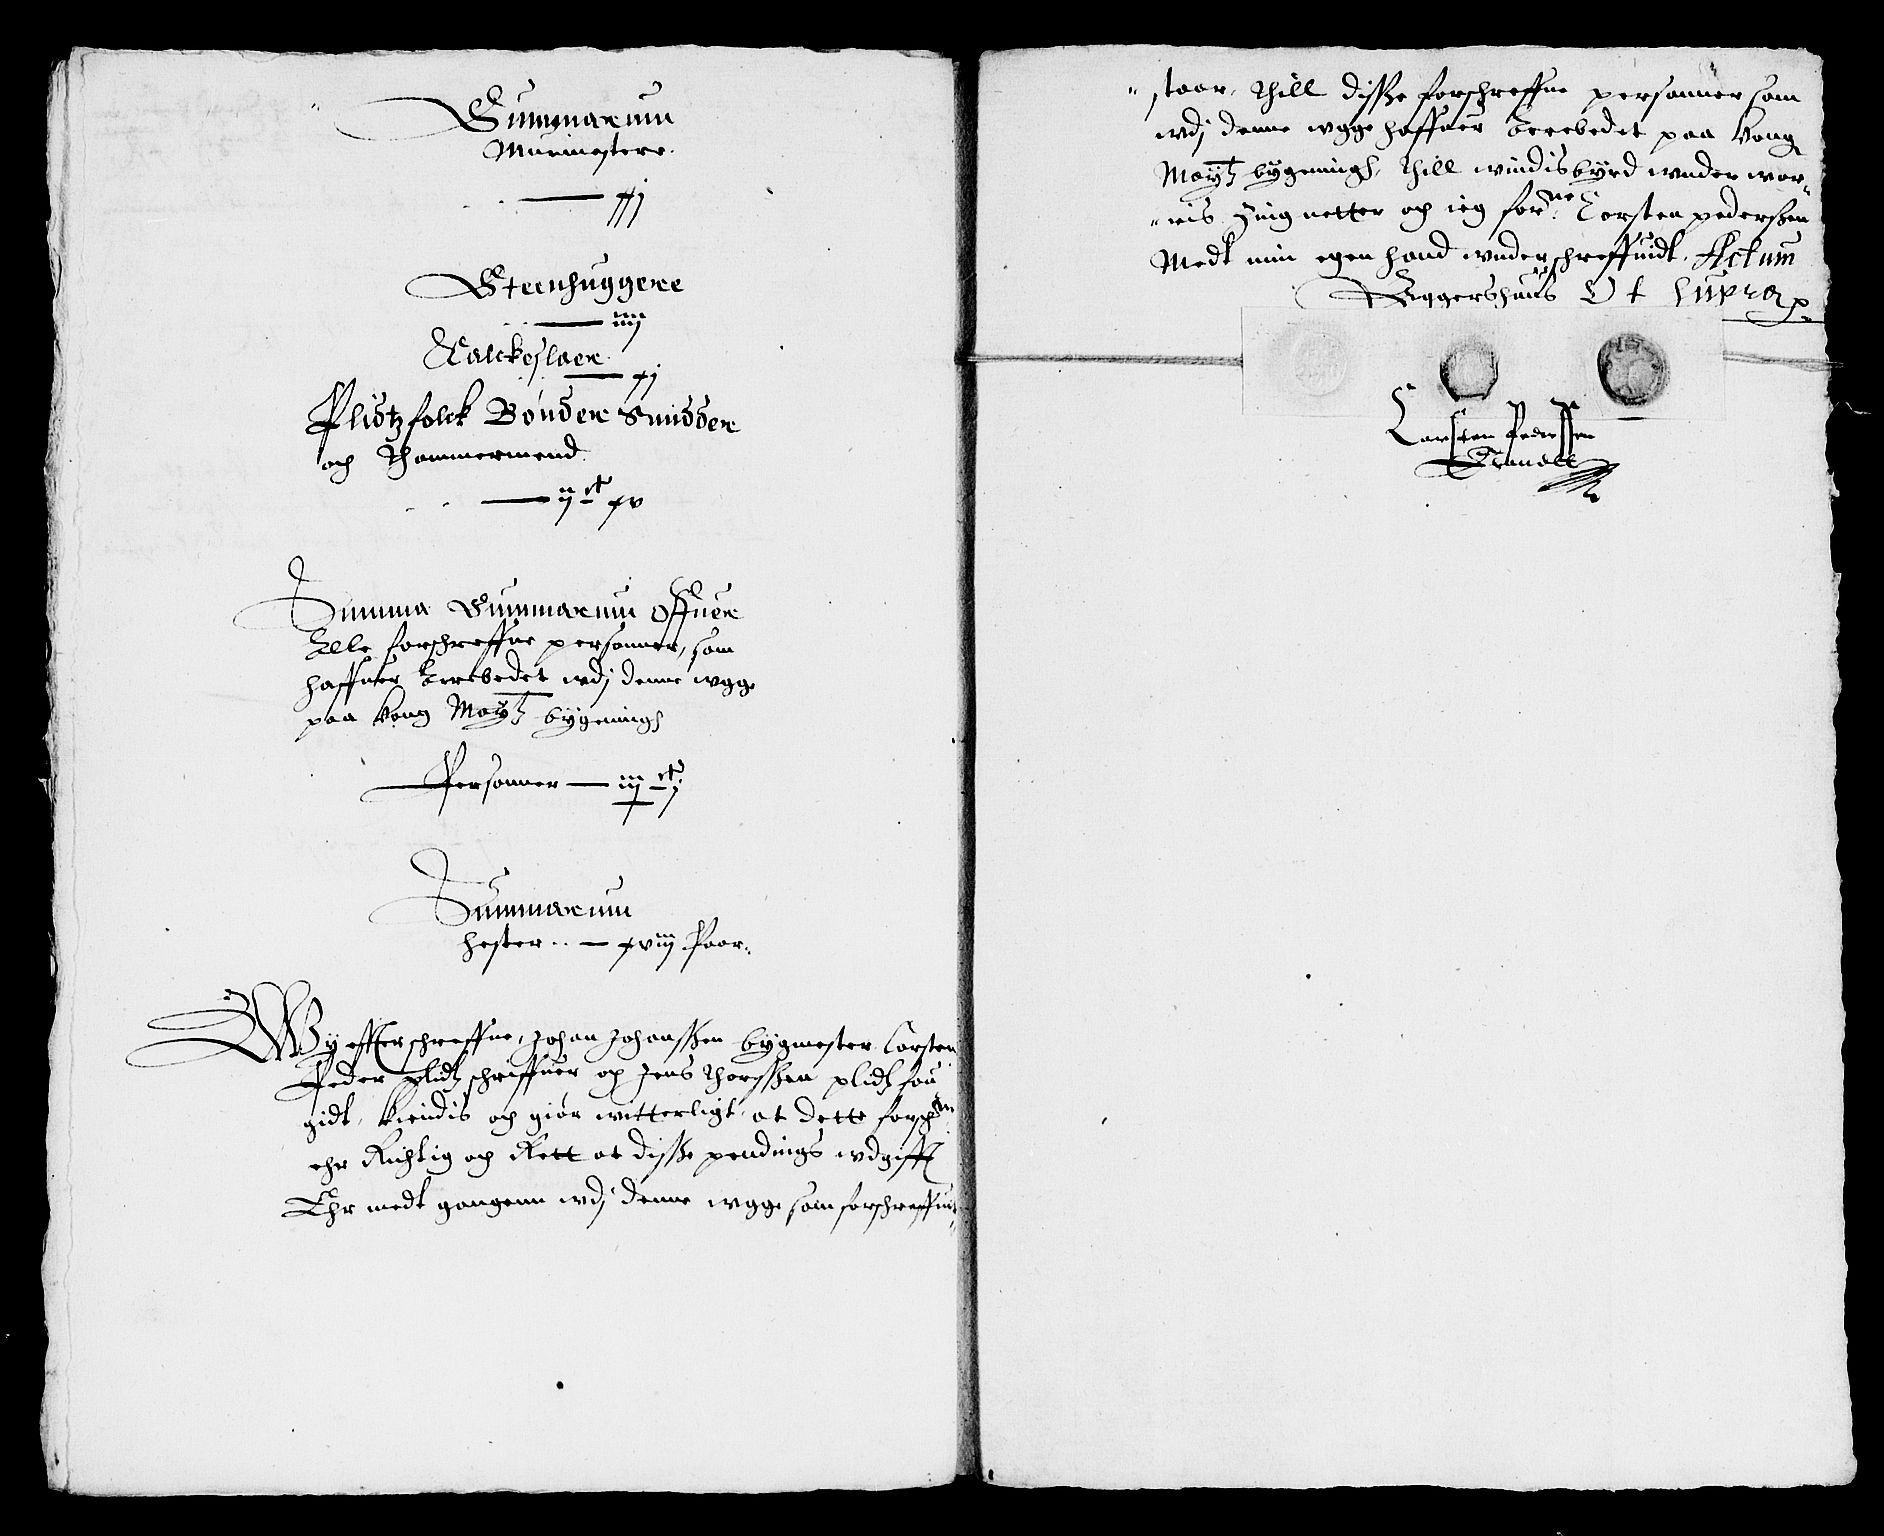 Summarum
Murmestere.
— xxj
Steenhuggere
— iiij
Kalckeslaer
— xj
Plidtzfolck Bønder Smidder
och Thømmermend
— ij ct xv
Summa Summarum Offuer
Alle forschreffne personner, som
haffuer Arrebedet wdj denne wgge
paa Kong Maytz bygeningh
Personner — iij ct j
Summarum
hester .. — xviij Paar.
Wy effterschreffne, Johan Johanssen bygmester Carsten
Peder plidtz schriffuer og Jens Thorssen plidtz fou
gidt, kiendis och giør witterligt, at dette forschne
ehr Richtig och Rett at disse pendings wdgifft
Ehr medt gangenn wdj denne wgge som forschreffuit
staar, thill disse forschreffne personner som
wdj denne wgge haffuer Arrebedet paa Kong
Maytz bygeningh, Thill windisbyrd wnder wor-
ris Zingnetter och ieg forne Carsten pederssen
Medt min egen hand wnderschreffuidt, Actum
Aggershuus Ut supra
Carsten Pederssen